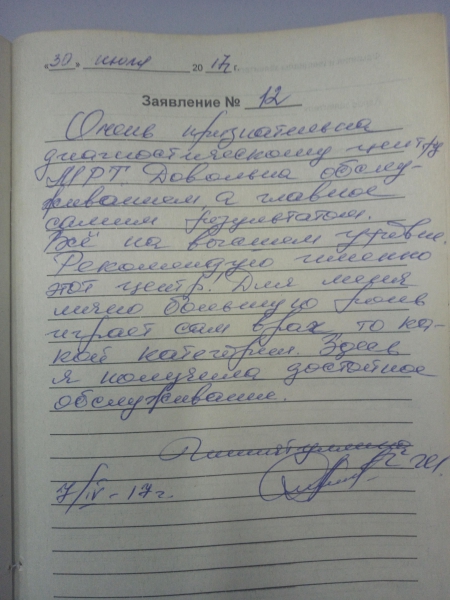 «30» июля 2017г.
Заявление № 12
Очень признательна
диагностическому центру
МРТ. Довольна обслу-
живанием, а главное
самим результатом.
Всё на высшем уровне.
Рекомендую именно
этот центр! Для меня
лично большую роль
играет сам врач, то ка-
кой категории. Здесь
я получила достойное
обслуживание.
7/IV-17г.